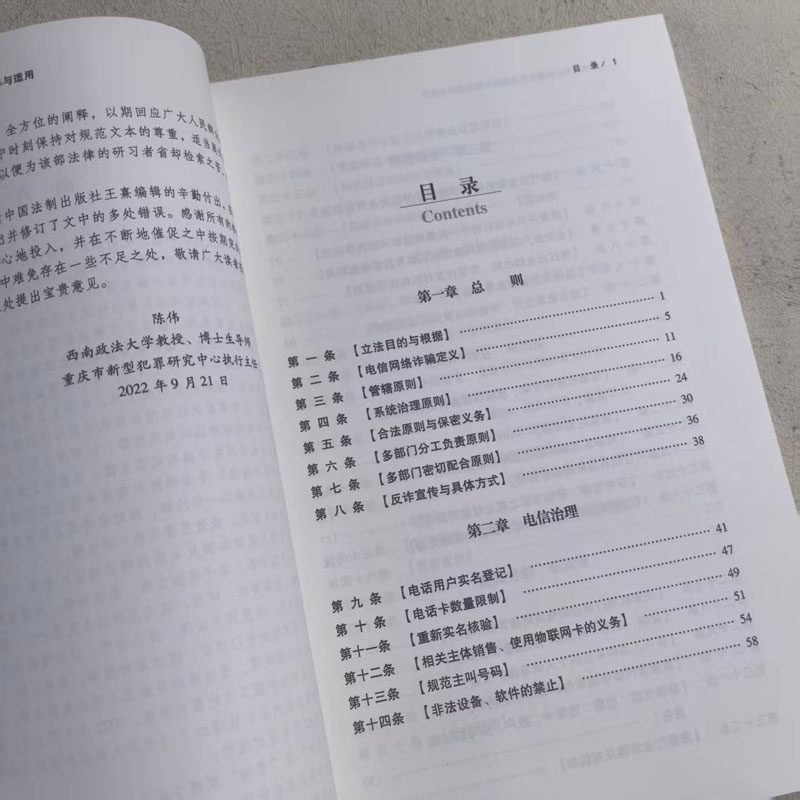 与适用
全方位的阐释，以期回应广大人民群
中时刻保持对规范文本的尊重，适当
以便为该部法律的研习者省却检索之
中国法制出版社王熹编辑的辛勤付出，
出并修订了文中的多处错误。感谢所有
心地投入，并在不断地催促之中按期
中难免存在一些不足之处，敬请广大读者
处提出宝贵意见。
陈伟
西南政法大学教授、博士生导师
重庆市新型犯罪研究中心执行主任
2022 年 9 月 21 日
目 录 / 1
目 录
Contents
第一章 总 则
第 一 条 【立法目的与根据】 1
第 二 条 【电信网络诈骗定义】 5
第 三 条 【管辖原则】 11
第 四 条 【系统治理原则】 16
第 五 条 【合法原则与保密义务】 24
第 六 条 【多部门分工负责原则】 30
第 七 条 【多部门密切配合原则】 36
第 八 条 【反诈宣传与具体方式】 38
第二章 电信治理
第 九 条 【电话用户实名登记】 41
第 十 条 【电话卡数量限制】 47
第十一条 【重新实名核验】 49
第十二条 【相关主体销售、使用物联网卡的义务】 51
第十三条 【规范主叫号码】 54
第十四条 【非法设备、软件的禁止】 58